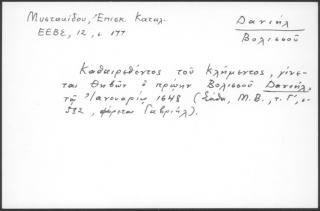 Μυστακίδου, Ἐπισκ. Κατάλ.
ΕΕΒΣ, 12, σ. 177
Δανιήλ
Βολισσοῦ
Καθαιρεθέντος τοῦ Κλήμεντος, γίνε-
ται Θηβῶν ὁ πρώην Βολισσοῦ Δανιήλ,
τῇ Ἰανουαρίῳ 1648 (Σάθα, Μ.Β., τ. Γ', σ.
592, φέρεται Γαβριήλ).